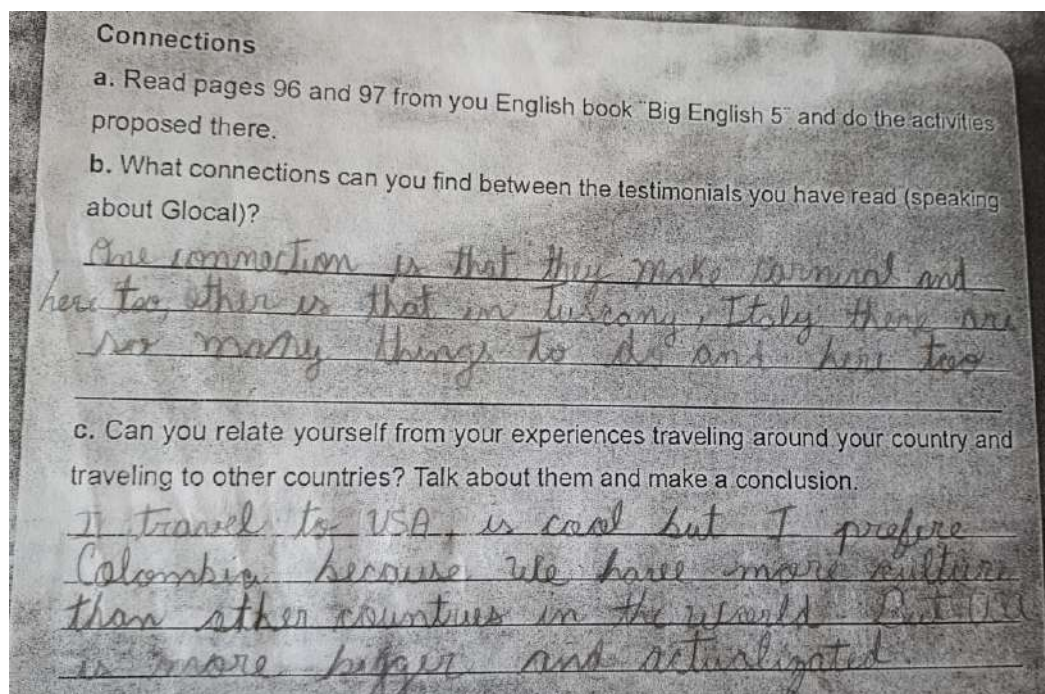 Connections
a. Read pages 96 and 97 from you English book "Big English 5" and do the activities
proposed there.
b. What connections can you find between the testimonials you have read (speaking
about Glocal)?
One connection is that they make carnival and
here too, other is that in Tuscany, Italy there are
so many things to do and here too
c. Can you relate yourself from your experiences traveling around your country and
traveling to other countries? Talk about them and make a conclusion.
I travel to USA, is cool but I prefere
Colombia because We have more culture
than other countries in the world. But
is more bigger and actualizated.